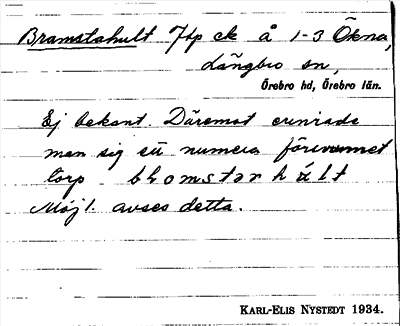 Bramstahult Ttp ek å 1-3 Ökna,
Långbro sn,
Örebro hd, Örebro län.
Ej bekant. Däremot erinrade
man sig ett numera försvunnet
torp blomstərhålt
Möjl. avses detta.
KARL-ELIS NYSTEDT 1934.